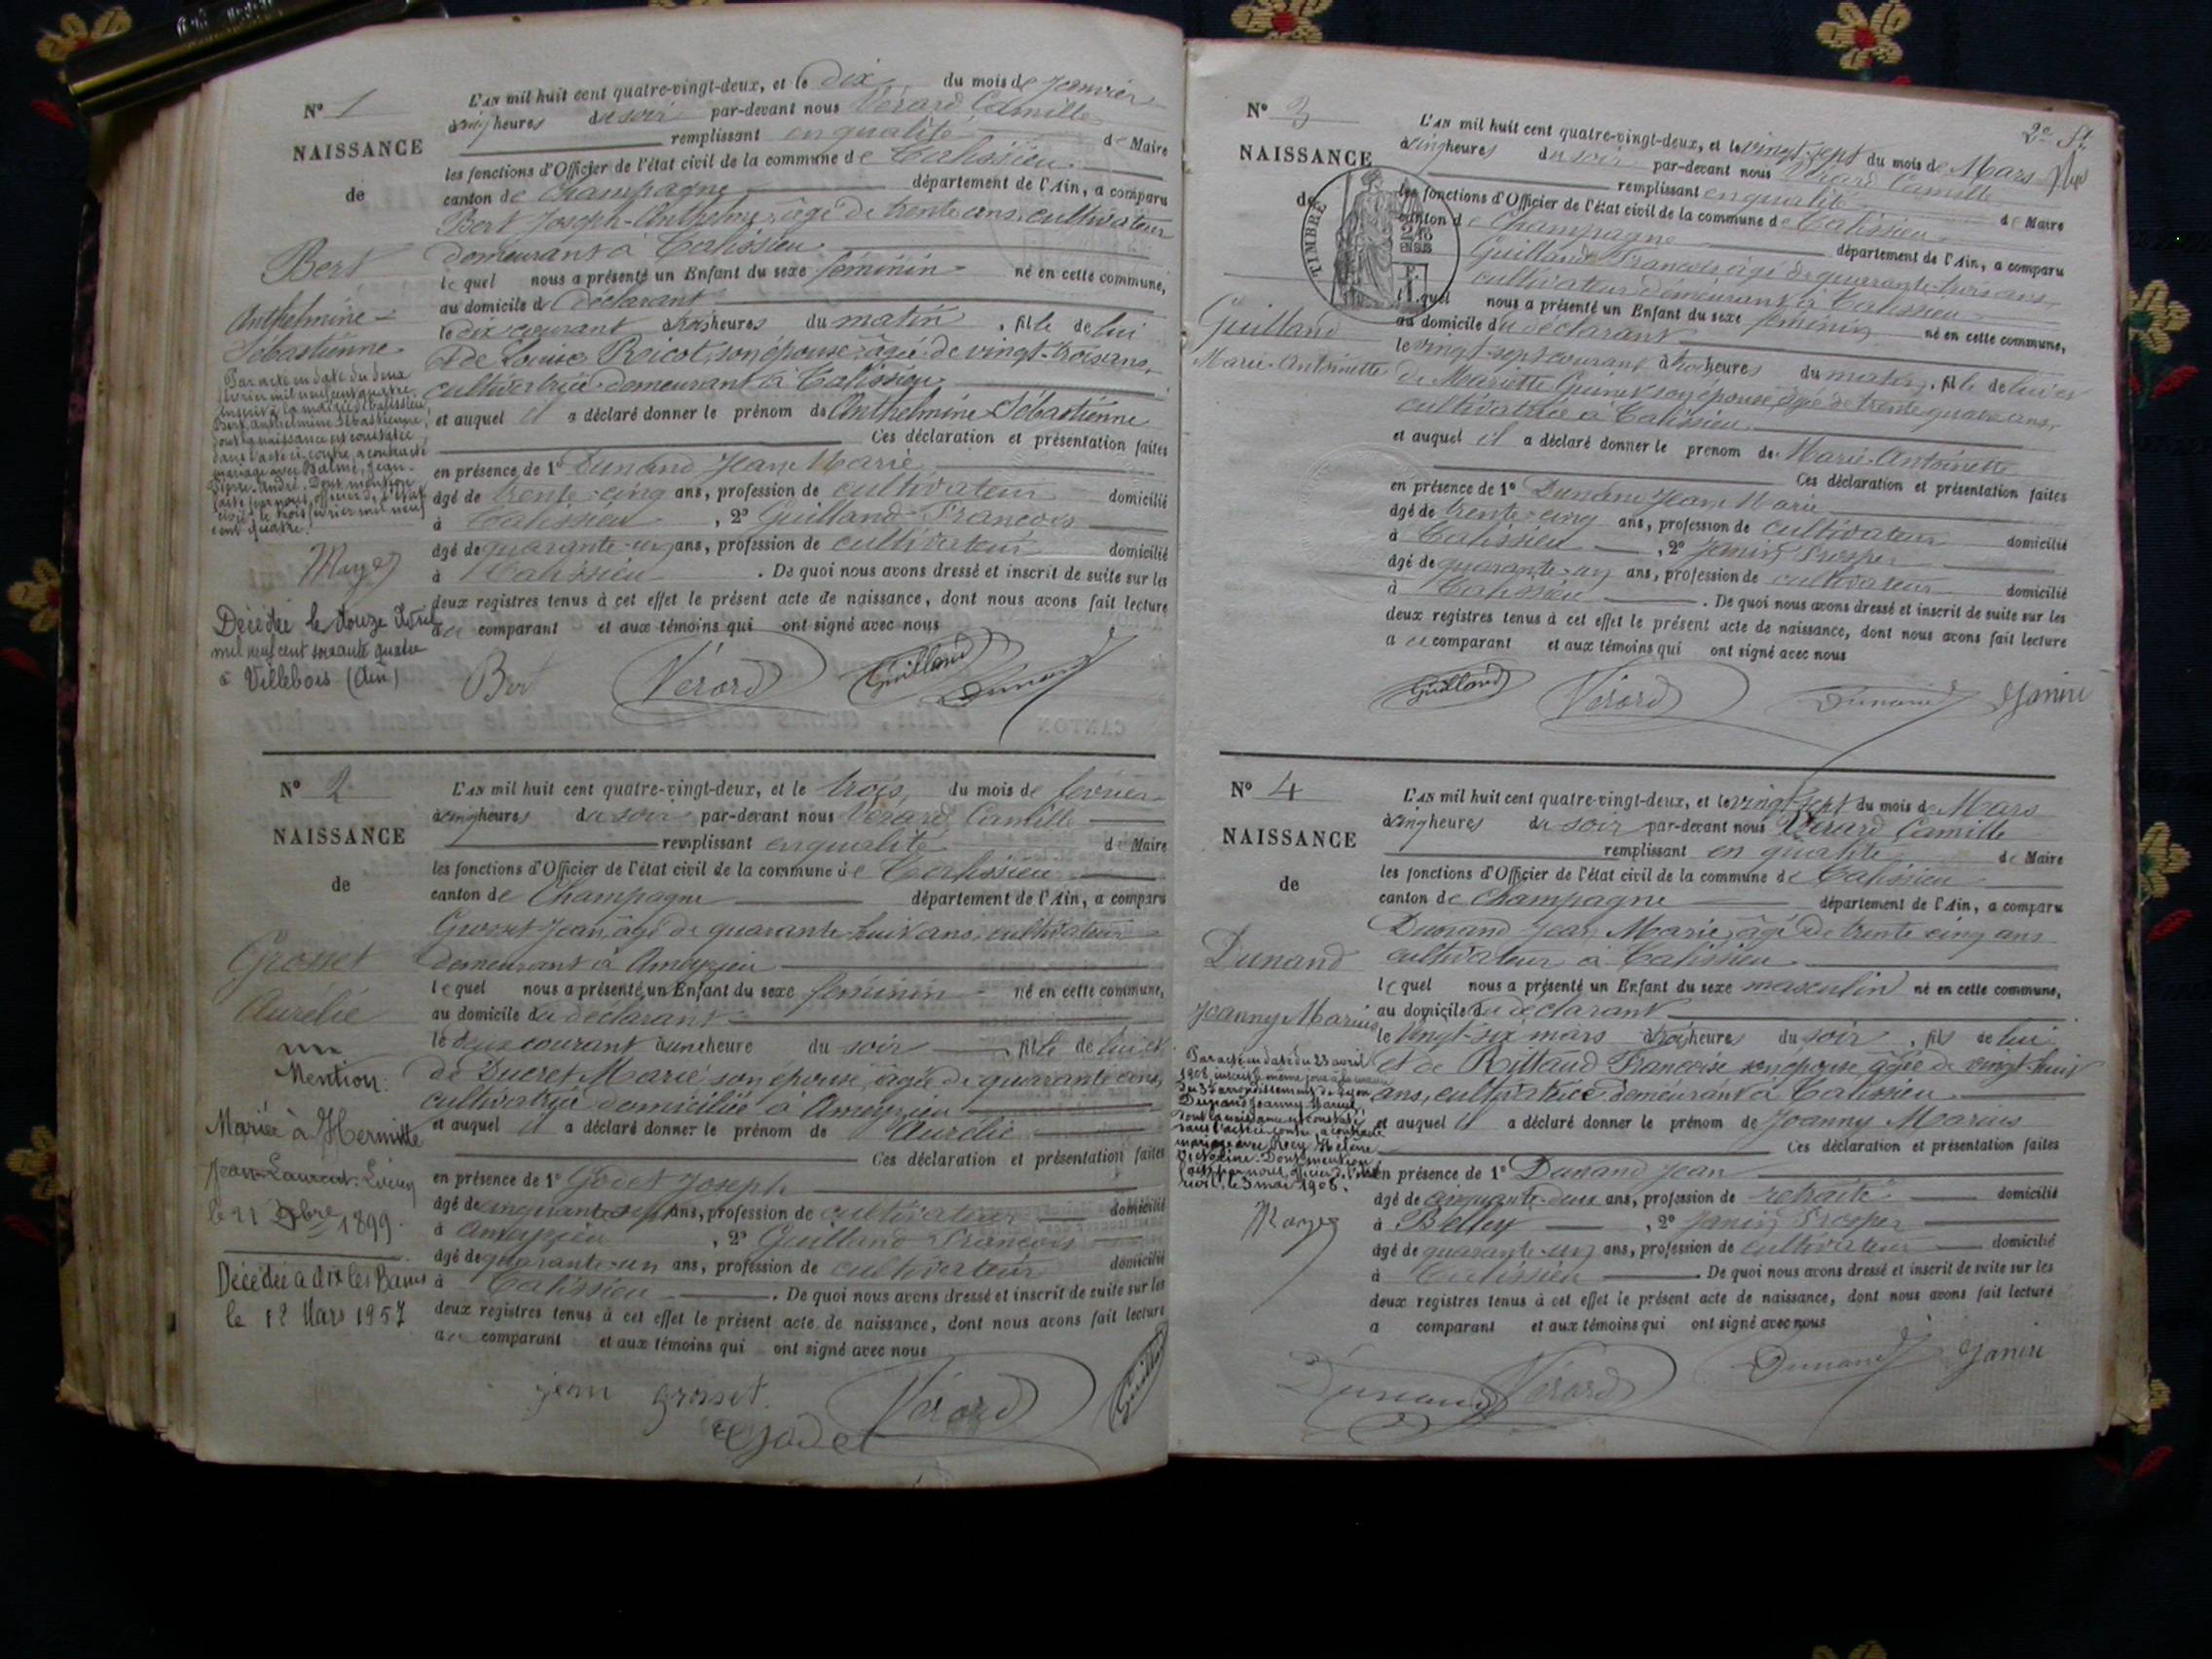 N° 1
NAISSANCE
de
Bert
Anthelmine
Sébastienne
Par acte en date du deux
février mil neuf cent quatre
inscrit à la mairie de Talissieu,
Bert Anthelmine Sébastienne,
dont la naissance est constatée
dans l'acte ci-contre, a contracté
mariage avec Balme, Jean-
Pierre-André. Dont mention
faite par nous, officier de l'état
civil, le trois février mil neuf
cent quatre.
Décédée le douze Avril
mil neuf cent soixante quatre
à Villebois (Ain)
L'AN mil huit cent quatre-vingt-deux, et le dix du mois de Janvier
à cinq heures du soir par-devant nous Vérard Camille
remplissant en qualité de Maire
les fonctions d'Officier de l'état civil de la commune de Talissieu
canton de Champagne département de l'Ain, a comparu
Bert Joseph-Anthelme, âgé de trente ans, cultivateur
demeurant à Talissieu
lequel nous a présenté un Enfant du sexe féminin né en cette commune,
au domicile du déclarant
le dix courant à trois heures du matin, fille de lui
et de Louise Reicot, son épouse âgée de vingt-trois ans,
cultivatrice demeurant à Talissieu
et auquel il a déclaré donner le prénom de Anthelmine Sébastienne
Ces déclaration et présentation faites
en présence de 1° Dunand Jean Marie
âgé de trente-cinq ans, profession de cultivateur domicilié
à Talissieu, 2° Guilland François
âgé de quarante-un ans, profession de cultivateur domicilié
à Talissieu. De quoi nous avons dressé et inscrit de suite sur les
deux registres tenus à cet effet le présent acte de naissance, dont nous avons fait lecture
au comparant et aux témoins qui ont signé avec nous
Bert Vérard Guilland Dunand
N° 2
NAISSANCE
de
Grosset
Aurélie
Mention:
Mariée à Hermitte
Jean-Laurent-
le 21 9bre 1899.
Décédée à Aix les Bains
le 12 Mars 1957
L'AN mil huit cent quatre-vingt-deux, et le trois du mois de février
à cinq heures du soir par-devant nous Vérard Camille
remplissant en qualité de Maire
les fonctions d'Officier de l'état civil de la commune de Talissieu
canton de Champagne département de l'Ain, a comparu
Grosset Jean, âgé de quarante-huit ans, cultivateur
demeurant à Ameyzieu
lequel nous a présenté un Enfant du sexe féminin né en cette commune,
au domicile du déclarant
le deux courant à une heure du soir, fille de lui et
de Ducret Marie son épouse, âgée de quarante ans,
cultivatrice domiciliée à Ameyzieu
et auquel il a déclaré donner le prénom de Aurélie
Ces déclaration et présentation faites
en présence de 1° Godet Joseph
âgé de cinquante-sept ans, profession de cultivateur domicilié
à Ameyzieu, 2° Guilland François
âgé de quarante-un ans, profession de cultivateur domicilié
à Talissieu. De quoi nous avons dressé et inscrit de suite sur les
deux registres tenus à cet effet le présent acte de naissance, dont nous avons fait lecture
au comparant et aux témoins qui ont signé avec nous
jean grosset. Godet Vérard Guilland
2e
N° 3
NAISSANCE
de
TIMBRE
Guilland
Marie-Antoinette
L'AN mil huit cent quatre-vingt-deux, et le vingt-sept du mois de Mars
à cinq heures du soir par-devant nous Vérard Camille
remplissant en qualité de Maire
les fonctions d'Officier de l'état civil de la commune de Talissieu
canton de Champagne département de l'Ain, a comparu
Guilland François âgé de quarante-trois ans,
cultivateur demeurant à Talissieu
lequel nous a présenté un Enfant du sexe féminin né en cette commune,
au domicile du déclarant
le vingt-sept courant à trois heures du matin, fille de lui et
de Mariette son épouse, âgée de trente-quatre ans,
cultivatrice à Talissieu
et auquel il a déclaré donner le prénom de Marie-Antoinette
Ces déclaration et présentation faites
en présence de 1° Dunand Jean Marie
âgé de trente-cinq ans, profession de cultivateur domicilié
à Talissieu, 2° Janin Prosper
âgé de quarante-un ans, profession de cultivateur domicilié
à Talissieu. De quoi nous avons dressé et inscrit de suite sur les
deux registres tenus à cet effet le présent acte de naissance, dont nous avons fait lecture
au comparant et aux témoins qui ont signé avec nous
Guilland Vérard Dunand Janin
N° 4
NAISSANCE
de
Dunand
Joanny Marius
Par acte en date du 23 avril
1908 inscrit le même jour à la mairie
du 3e arrondissement de Lyon
Dunand Joanny Marius,
dont la naissance est constatée
dans l'acte ci-contre, a contracté
mariage avec Hélène
Victorine. Dont mention
faite par nous, officier de l'état
civil, le 3 mai 1908.
L'AN mil huit cent quatre-vingt-deux, et le vingt-sept du mois de Mars
à cinq heures du soir par-devant nous Vérard Camille
remplissant en qualité de Maire
les fonctions d'Officier de l'état civil de la commune de Talissieu
canton de Champagne département de l'Ain, a comparu
Dunand Jean Marie, âgé de trente cinq ans
cultivateur à Talissieu
lequel nous a présenté un Enfant du sexe masculin né en cette commune,
au domicile du déclarant
le vingt-six mars à trois heures du soir, fils de lui
et de Rittaud Françoise son épouse âgée de vingt-huit
ans, cultivatrice demeurant à Talissieu
et auquel il a déclaré donner le prénom de Joanny Marius
Ces déclaration et présentation faites
en présence de 1° Dunand Jean
âgé de cinquante-deux ans, profession de retraité domicilié
à Belley, 2° Janin Prosper
âgé de quarante-un ans, profession de cultivateur domicilié
à Talissieu. De quoi nous avons dressé et inscrit de suite sur les
deux registres tenus à cet effet le présent acte de naissance, dont nous avons fait lecture
a comparant et aux témoins qui ont signé avec nous
Dunand Vérard Dunand Janin